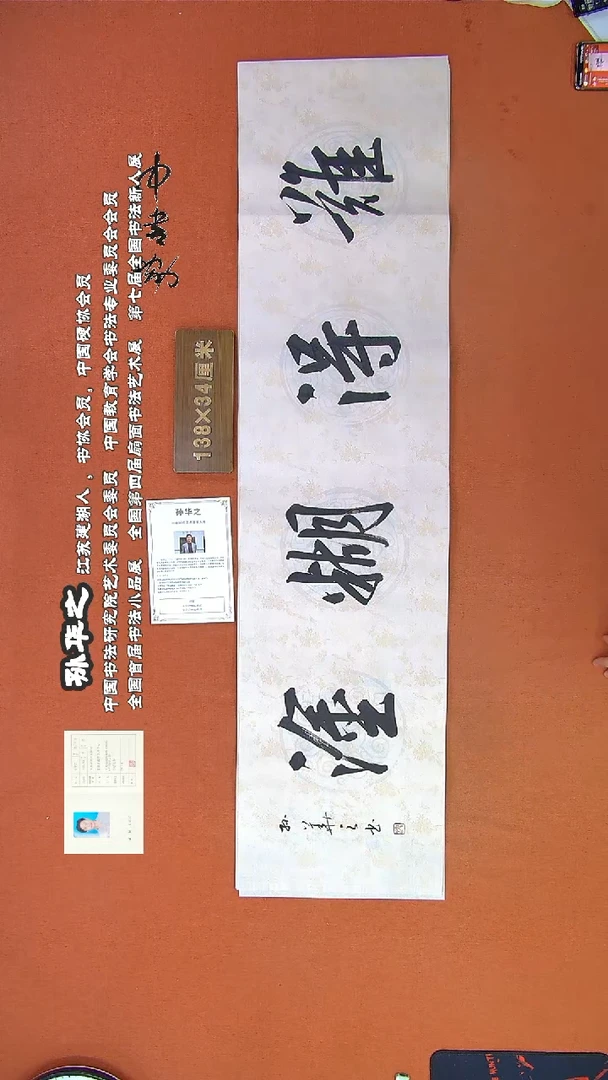 孙华之 江苏建湖人,书协会员,中国硬协会员
中国书法研究院艺术委员会委员 中国教育学会书法专业委员会会员
全国首届书法小品展 全国第四届扇面书法艺术展 第七届全国书法新人展
138×34厘米
孙华之
難得糊塗
孙華之书